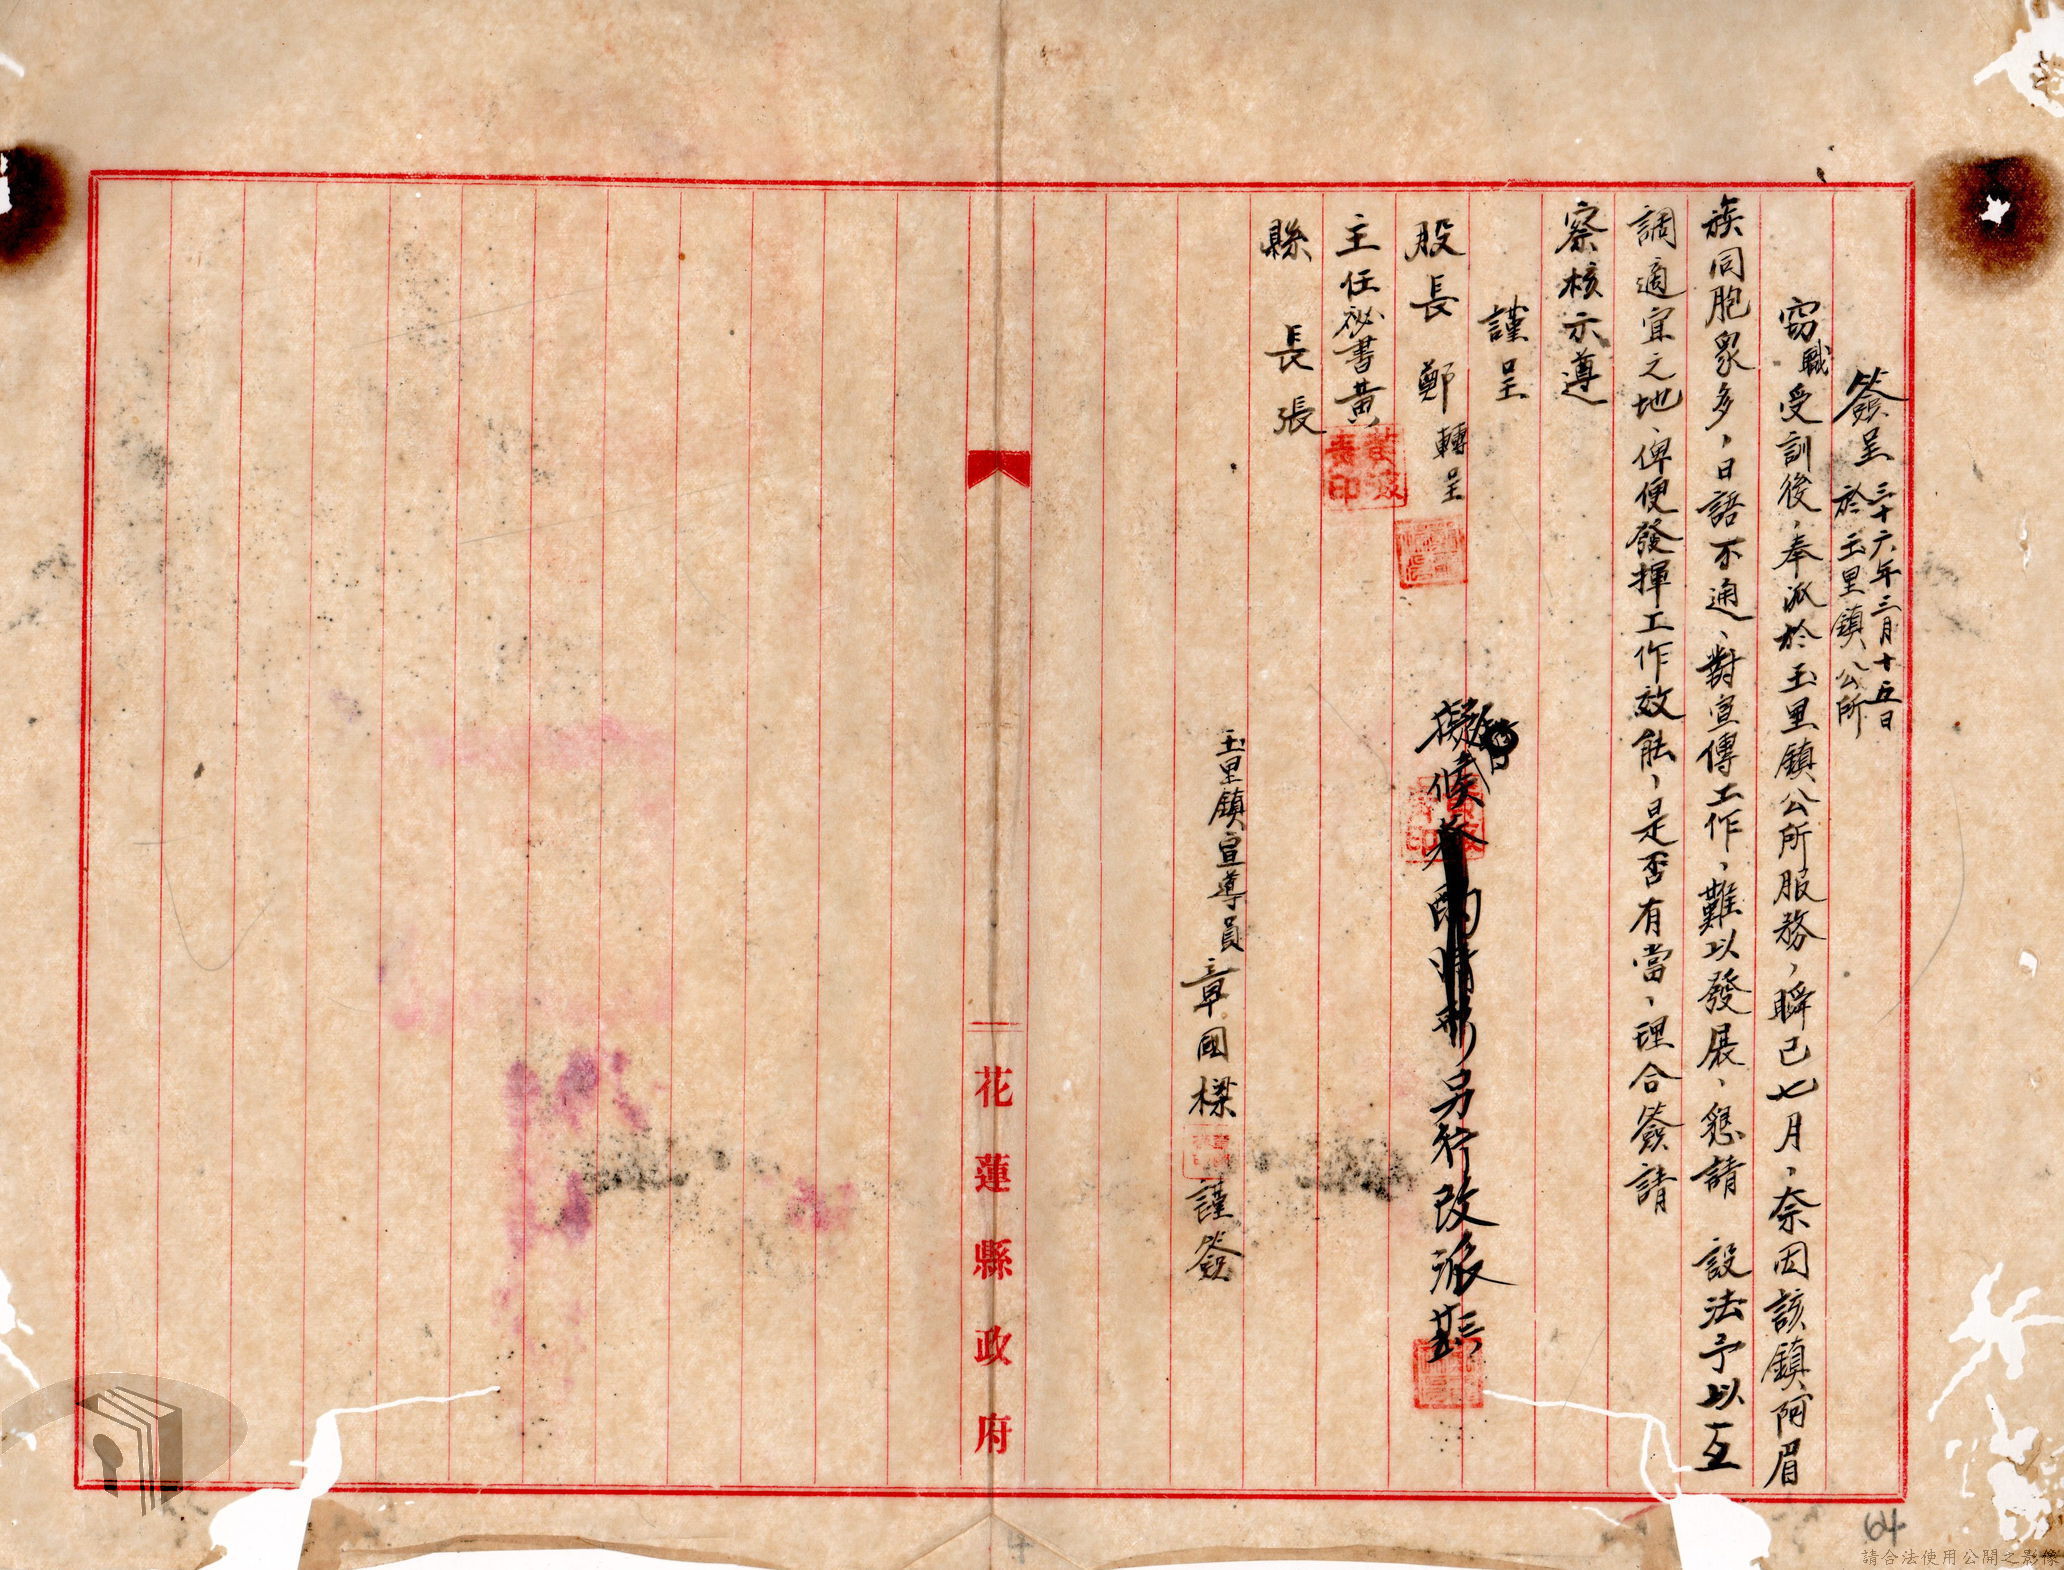 簽呈 三十六年三月十五日
於玉里鎮公所
竊職受訓後，奉派於玉里鎮公所服務，瞬已七月，奈因該鎮阿眉
族同胞眾多，日語不通，對宣傳工作，難以發展，懇請 設法予以互
調適宜之地，俾便發揮工作效能，是否有當，理合簽請
察核示遵
謹呈
股長鄭 轉呈
主任祕書黃
縣長張
擬候參酌情形另行改派
玉里鎮宣導員 章國樑 謹簽
花蓮縣政府
64
請合法使用公開之影像